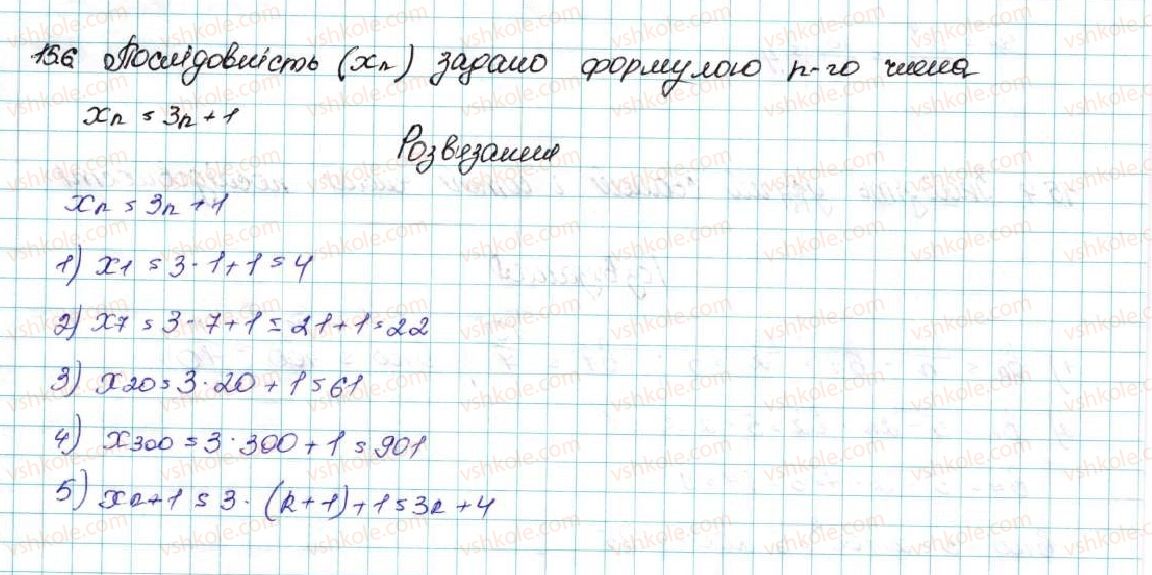 156 Послідовність (xn) задано формулою n-го члена
xn = 3n + 1
Розвязання
xn = 3n + 1
1) x1 = 3 · 1 + 1 = 4
2) x7 = 3 · 7 + 1 = 21 + 1 = 22
3) x20 = 3 · 20 + 1 = 61
4) x300 = 3 · 300 + 1 = 901
5) xn+1 = 3 · (n + 1) + 1 = 3n + 4
vshkole.com